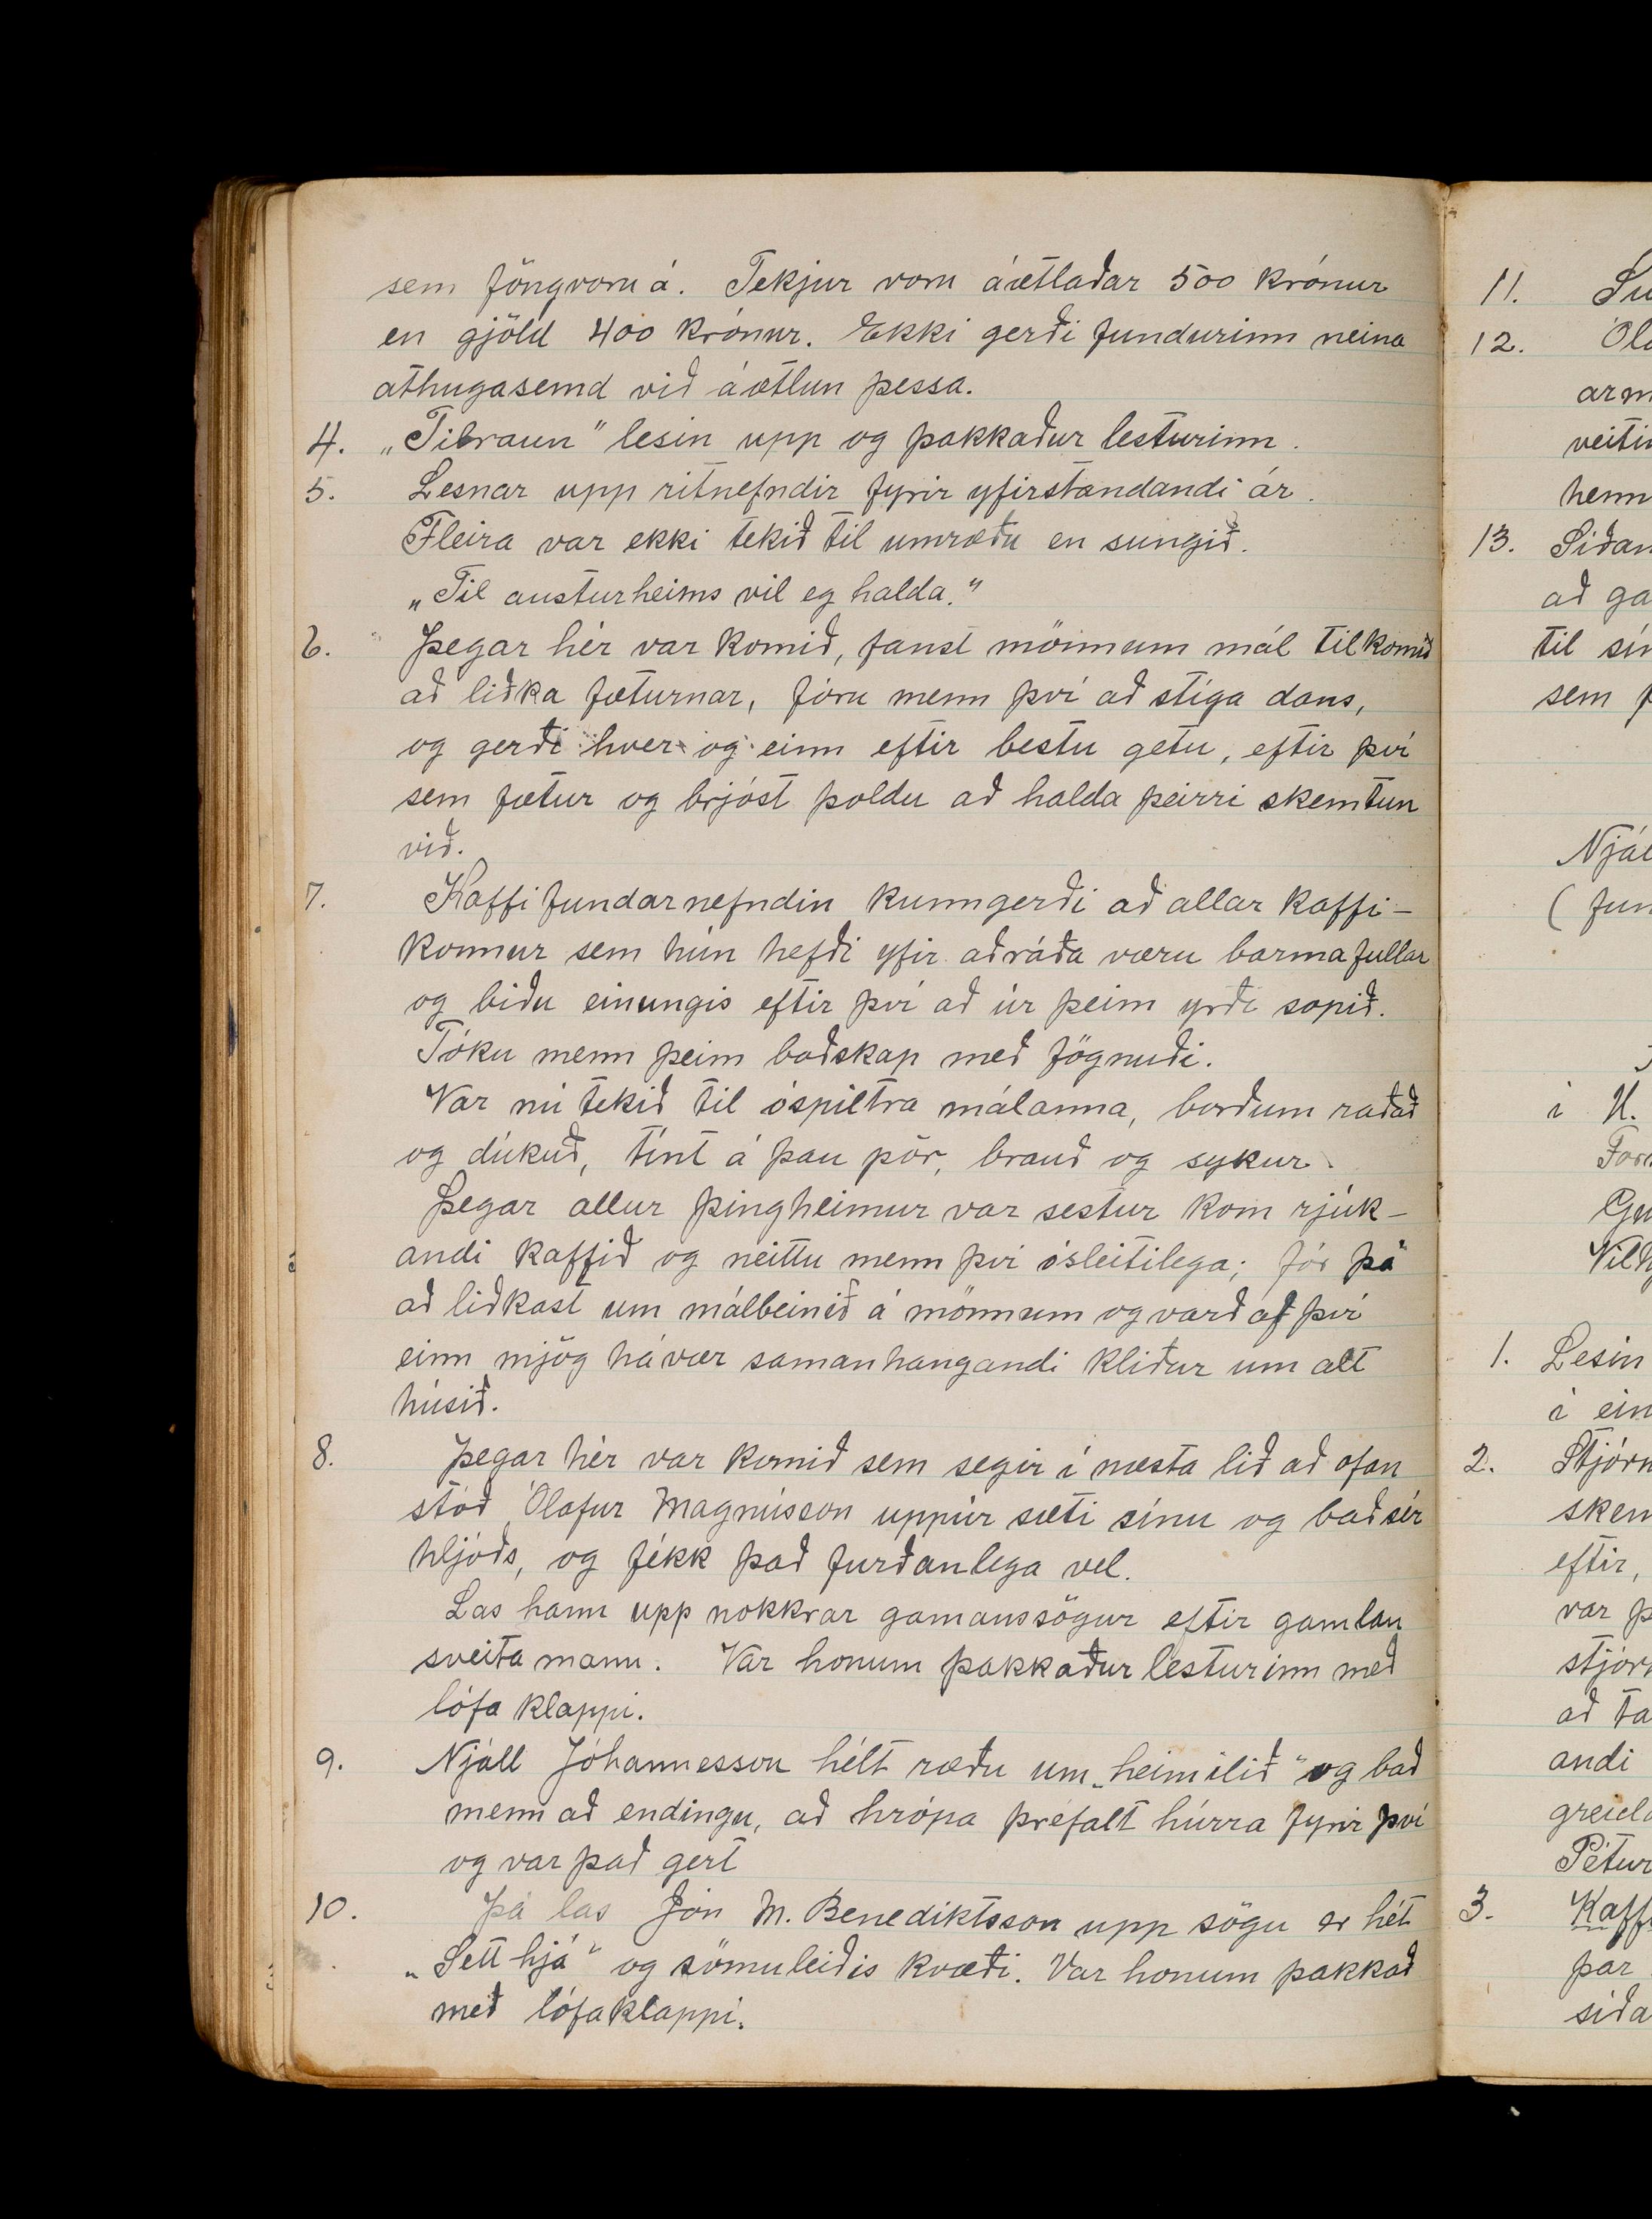 sem föng voru á. Tekjur voru áætlaðar 500 krónur
en gjöld 400 krónur. Ekki gerði fundurinn neina
athugasemd við áætlun þessa.
4. „Tibraun" lesin upp og þakkaður lesturinn.
5. Lesnar upp ritnefndir fyrir yfirstandandi ár.
Fleira var ekki tekið til umræðu en sungið.
„Til austurheims vil eg halda."
6. Þegar hér var komið, fanst mönnum mál til komið
að liðka fæturnar, fóru menn því að stíga dans,
og gerði hver og einn eftir bestu getu, eftir því
sem fætur og brjóst þoldu að halda þeirri skemtun
við.
7. Kaffifundarnefndin kunngerði að allar kaffi-
könnur sem hún hefði yfir að ráða væru barmafullar
og biðu einungis eftir því að úr þeim yrði sopið.
Tóku menn þeim boðskap með fögnuði.
Var nú tekið til óspiltra málanna, borðum raðað
og dúkuð, tínt á þau pör, brauð og sykur.
Þegar allur þingheimur var sestur kom rjúk-
andi kaffið og neittu menn því ósleitilega; fór þá
að liðkast um málbeinið á mönnum og varð af því
einn mjög hávær samanhangandi kliður um alt
húsið.
8. Þegar hér var komið sem segir í næsta lið að ofan
stóð Ólafur Magnússon uppúr sæti sínu og bað sér
hljóðs, og fékk það furðanlega vel.
Las hann upp nokkrar gamanssögur eftir gamlan
sveitamann. Var honum þakkaður lesturinn með
lófaklappi.
9. Njáll Jóhannesson hélt ræðu um „heimilið" og bað
menn að endingu, að hrópa þréfalt húrra fyrir því
og var það gert
10. Þá las Jón M. Benediktsson upp sögu er hét
„Sett hjá" og sömuleiðis kvæði. Var honum þakkað
með lófaklappi.
11.
12.
veitin
henn
13. Síðan
að ga
til sín
sem þ
Njál
( fun
í U.
1. Lesin
í ein
2. Stjórn
skem
eftir,
var þ
stjórn
að ta
andi
greid
Pétur
3. Kaff
þar
síða